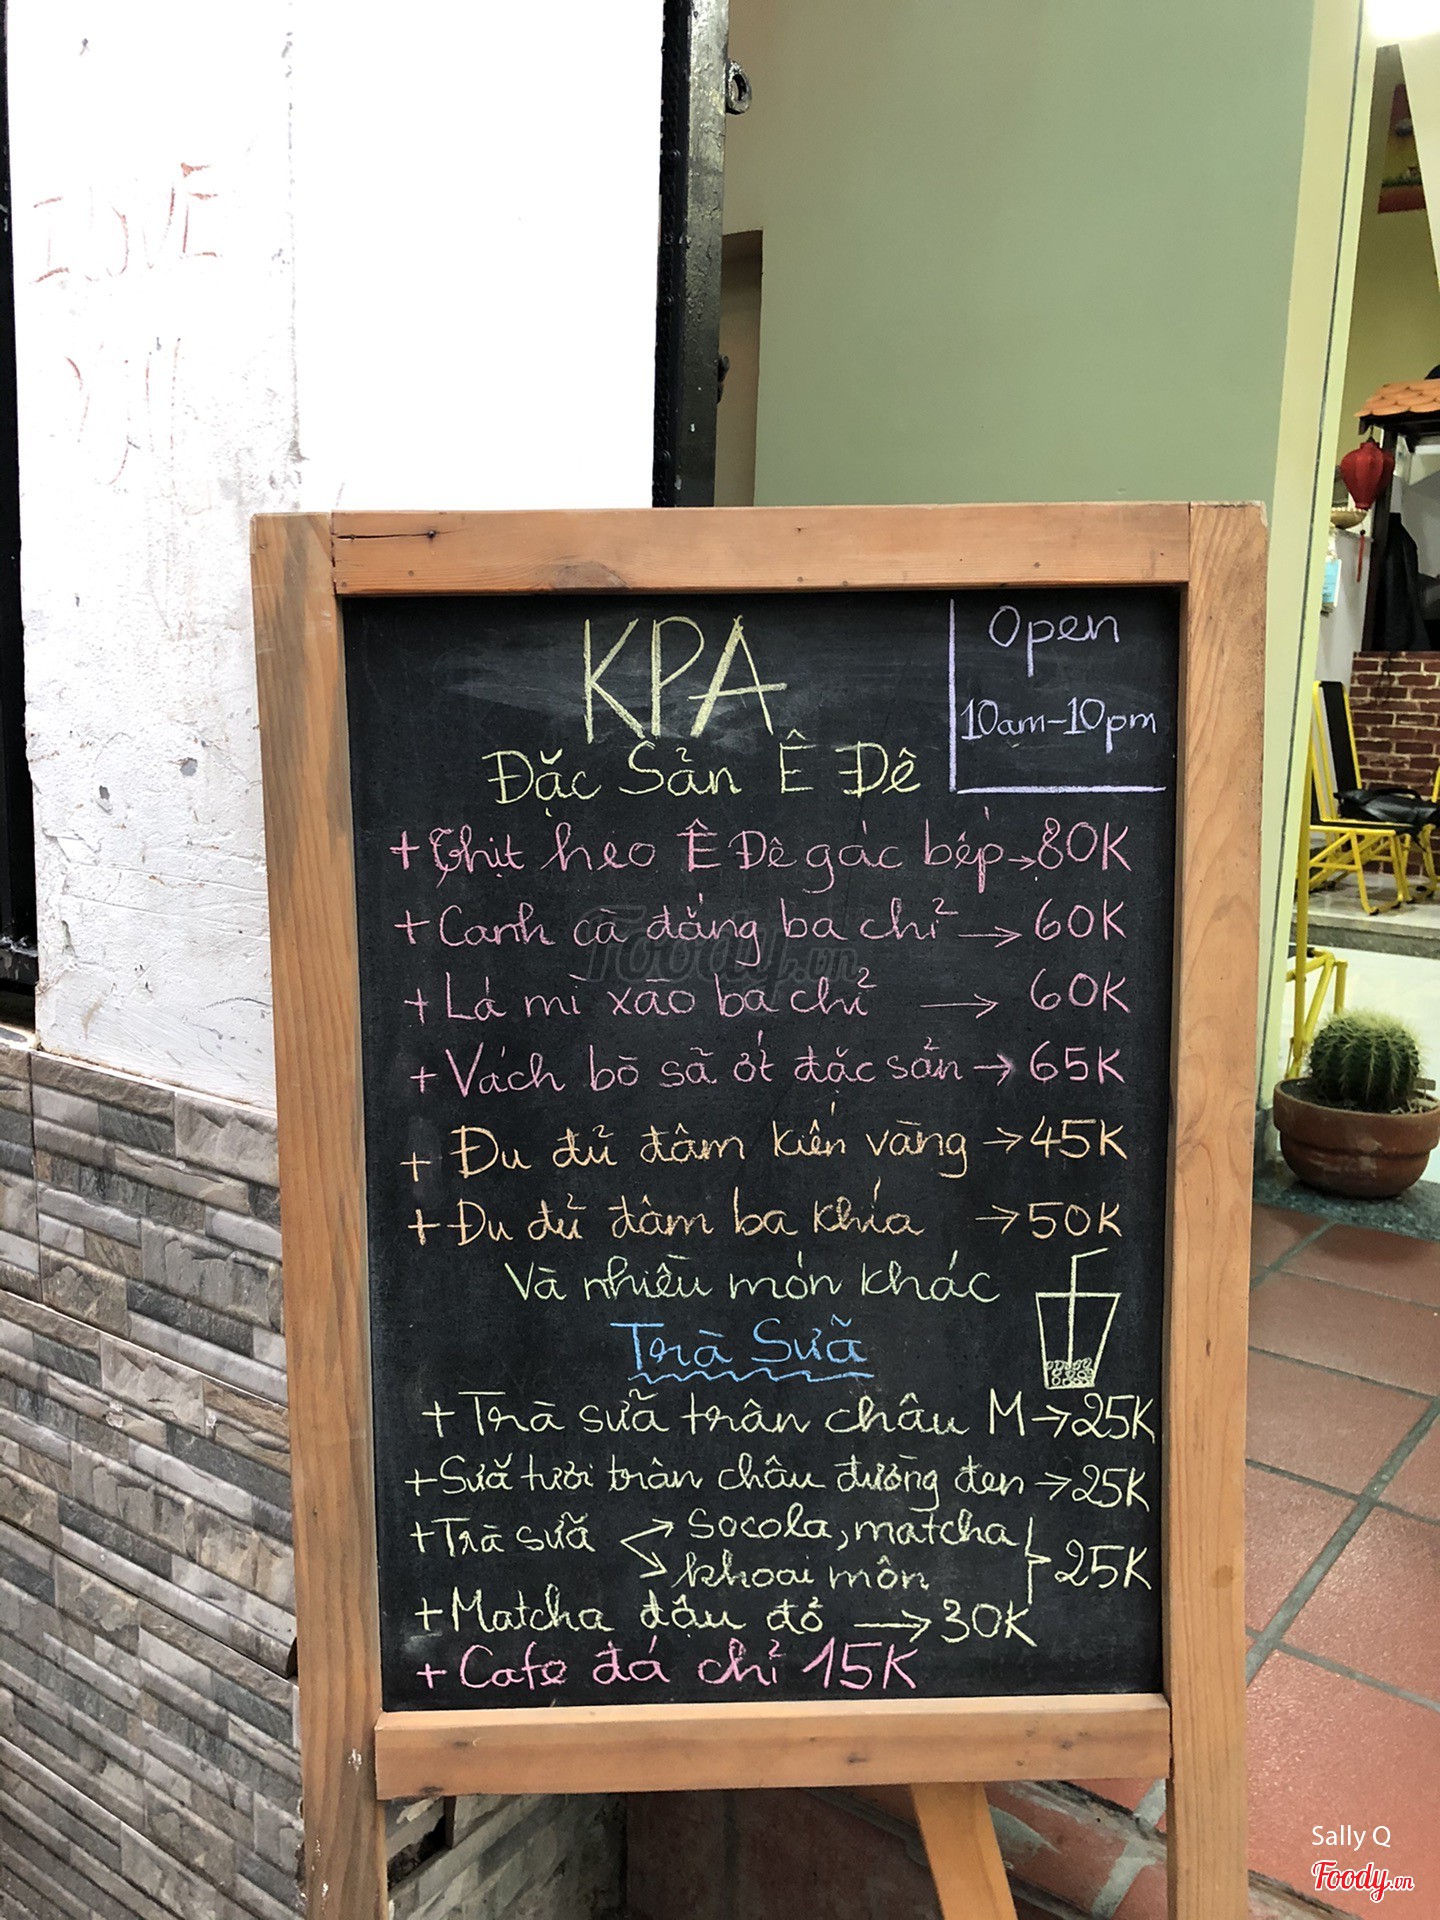 I LOVE
KPA
Open
10am-10pm
Đặc Sản Ê Đê
+ Thịt heo Ê Đê gác bếp → 80K
+ Canh cà đắng ba chỉ → 60K
+ Lá mì xào ba chỉ → 60K
+ Vách bò sã ớt đặc sản → 65K
+ Đu đủ đâm kiến vàng → 45K
+ Đu đủ đâm ba khía → 50K
Và nhiều món khác
Trà Sữa
+ Trà sữa trân châu M → 25K
+ Sữa tươi trân châu đường đen → 25K
+ Trà sữa → Socola, matcha
→ khoai môn } 25K
+ Matcha đậu đỏ → 30K
+ Cafe đá chỉ 15K
Foody.vn
Sally Q
Foody.vn